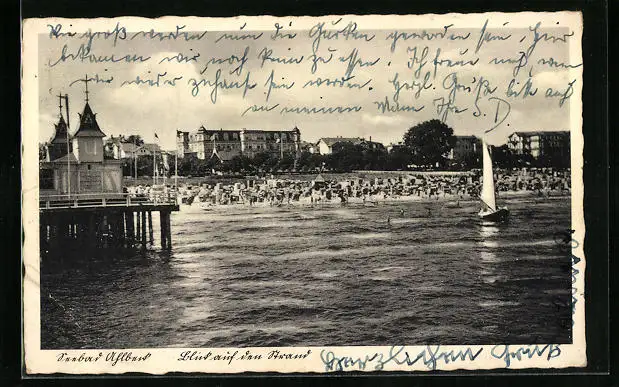 Wie groß werden nun die Gurken geworden sein, hier
bekamen wir noch kein zu essen. Ich freue mich, wenn
wir wieder zuhause sein werden. Herzl. Grüße bitte auch
an meinen Mann Ihre S. D
Seebad Ahlbeck Blick auf den Strand
Herzlichen Gruß